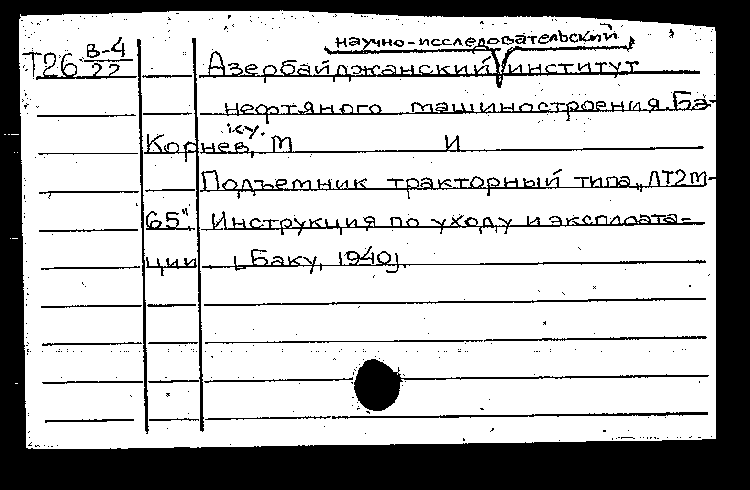 научно-исследовательский
Т26 В-4/22 Азербайджанский институт
нефтяного машиностроения. Ба-
ку.
Корнев, М И
Подъемник тракторный типа „ЛТ2М-
65". Инструкция по уходу и эксплоата-
ции. [Баку, 1940].